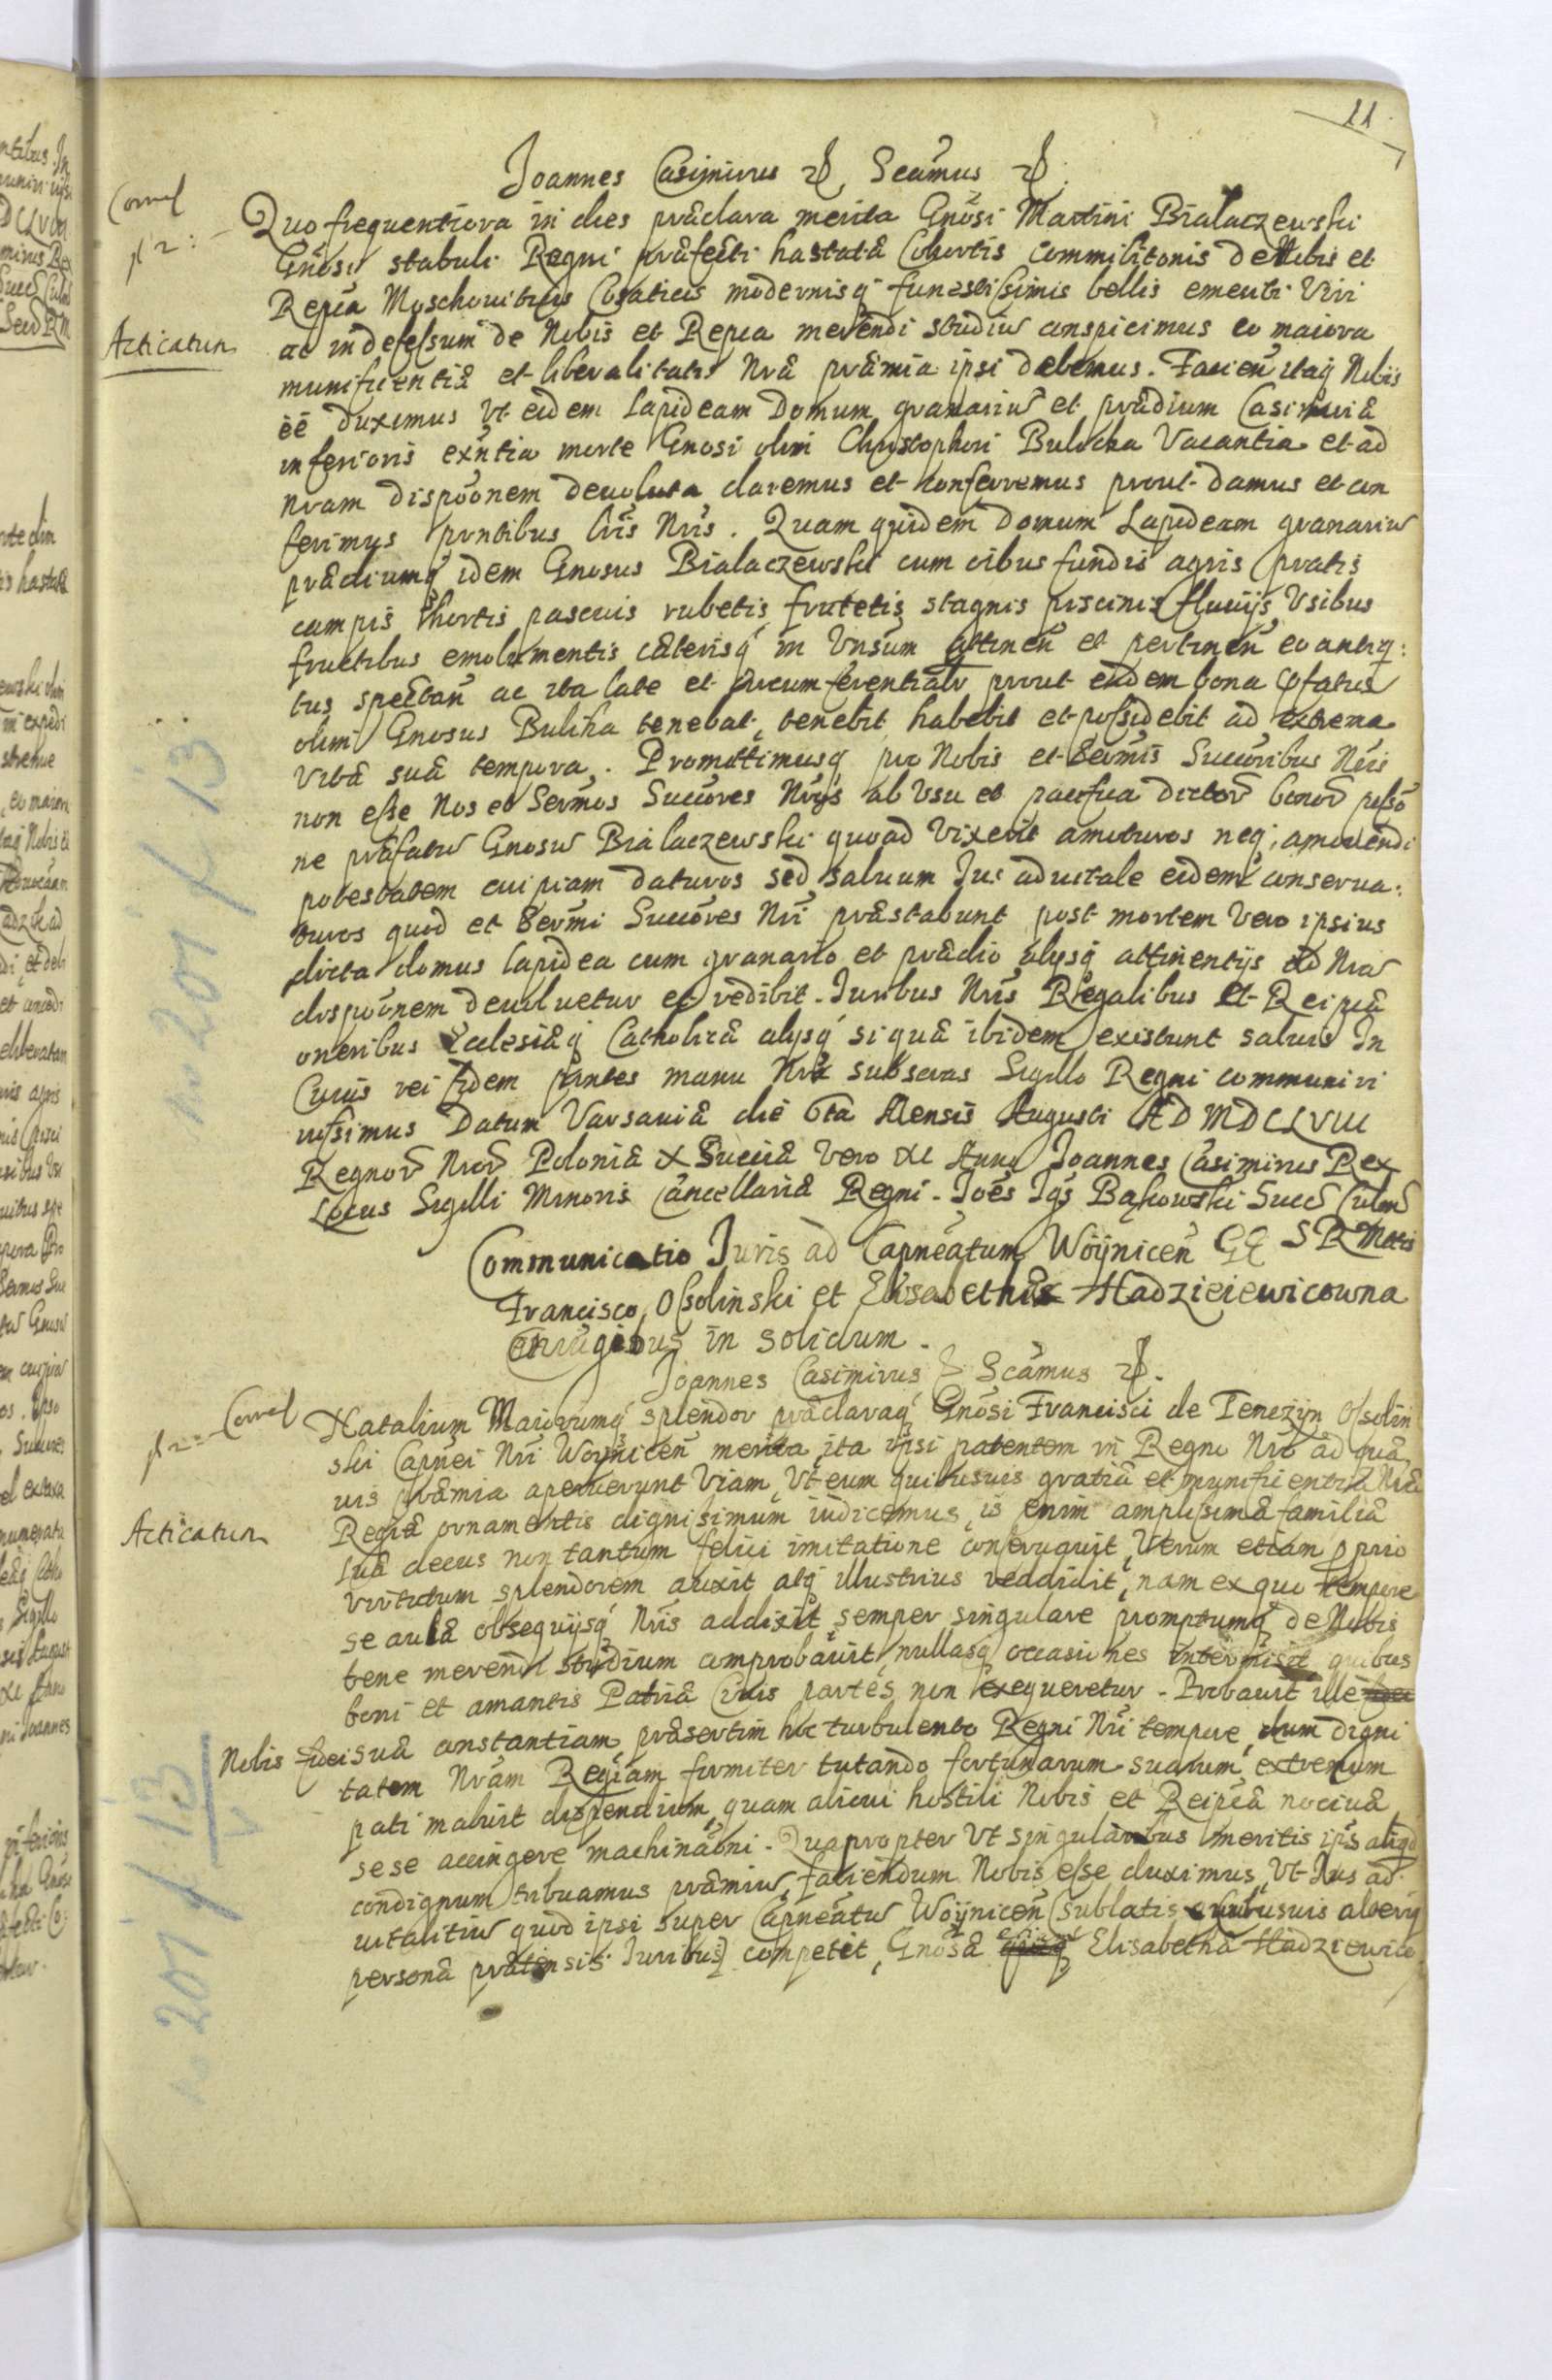 11
Joannes Casimirus Scamus
Correl
Quo frequentiora in dies præclara merita Gnosi Martini Bialaczewski
Gnosi stabuli Regni præfecti hastatæ Cohortis commilitonis de Nobis et
Repca Moschouiticis Cosaticis modernisq funestissimis bellis emeriti Viri
Acticatum
ac indefessum de Nobis et Repca merendi studiu conspicimus eo maiora
munificentiæ et liberalitatis Nræ præmia ipsi debemus. Facien itaq Nobis
ee duximus Vt eidem Lapideam Domum granariu et prædium Casimiriæ
inferioris exntia morte Gnosi olim Christophori Bulicha Vacantia et ad
nram dispoonem deuoluta daremus et conferremus prout damus et con
ferimus prntibus lris Nris. Quam quidem Domum Lapideam granariu
prædiumq idem Gnosus Bialaczewski cum oibus fundis agris pratis
campis hortis pascuis rubetis frutetis stagnis piscinis fluuijs Vsibus
fructibus emolumentis cæterisq in Vnsum attinen et pertinen eo antiq:
tus spectan ac ita late et circumferentialr prout eadem bona pfatus
olim Gnosus Buliha tenebat, tenebit habebit et possidebit ad extrema
Vitæ suæ tempora. Promittimusq pro Nobis et Sermis Succoribus Nris
non esse Nos et Sermos Succores Nros ab Vsu et pacifica dictor bonor posso
ne præfatu Gnosu Bialaczewski quoad Vixerit amoturos neq amouendi
potestatem cuipiam daturos sed saluum Jus aduitale eidem conserua:
turos quod et Sermi Succores Nri præstabunt post mortem Vero ipsius
dicta domus lapidea cum granario et prædio alysq attinentijs ad Nra
dispoonem deuoluetur et redibit. Juribus Nris Regalibus et Reipcæ
oneribus Ecclesiæq Catholicæ alysq si quæ ibidem existunt saluis In
Cuius rei fidem prntes manu Nra subscras Sigillo Regni communiri
iussimus Datum Varsauiæ die 6ta Mensis Augusti AD MDCLVIII
Regnor Nror Poloniæ X Sueciæ Vero XI Anno Joannes Casimirus Rex
Locus Sigilli Minoris Cancellariæ Regni. Joes Igs Bąkowski Succ Culm
SRMttis
Communicatio Juris ad Capneatum Woijnicen GG
Francisco Ossolinski et Elisabethæ Hadzieiewicowna
Coniugibus in solidum.
Joannes Casimirus Scamus
Correl
Natalium Maiorumq splendor præclaraq Gnosi Francisci de Tenczijn Ossolin
ski Capnei Nri Woijnicen merita ita ipsi patentem in Regno Nro ad quæ
uis præmia aperuerunt Viam, Vt eum quibusuis gratiæ et munificentiæ Nræ
Acticatum
Regiæ ornamentis dignissimum iudicemus, is enim amplissimæ familiæ
suæ decus non tantum felici imitatione conseruauit, Verum etiam pprio
virtutum splendorem auxit atq illustrius reddidit, nam ex quo tempore
se aulæ obsequijsq Nris addixit, semper singulare promptumq de Nobis
bene merendi studium comprobauit, nullasq occasiones intermisit, quibus
boni et amantis Patriæ Ciuis partes non exequeretur. Probauit ille
Nobis fidei suæ constantiam præsertim hoc turbulento Regni Nri tempore, dum digni
tatem Nram Regiam firmiter tutando fortunarum suarum extremum
pati maluit dispendium, quam alicui hostili Nobis et Reipcæ nociuæ
sese accingere machinaoni. Quapropter Vt singularibus meritis ipsi aliqd
condignum tribuamus præmiu, faciendum Nobis esse duximus, Vt Jus ad
uitalitiu quod ipsi super Capneatu Woijnicen (sublatis quibusuis alterij
personæ prætensis Juribus) competit, Gnosæ Elisabethæ Hadziewico
n 201 / 13
n 201 / 13